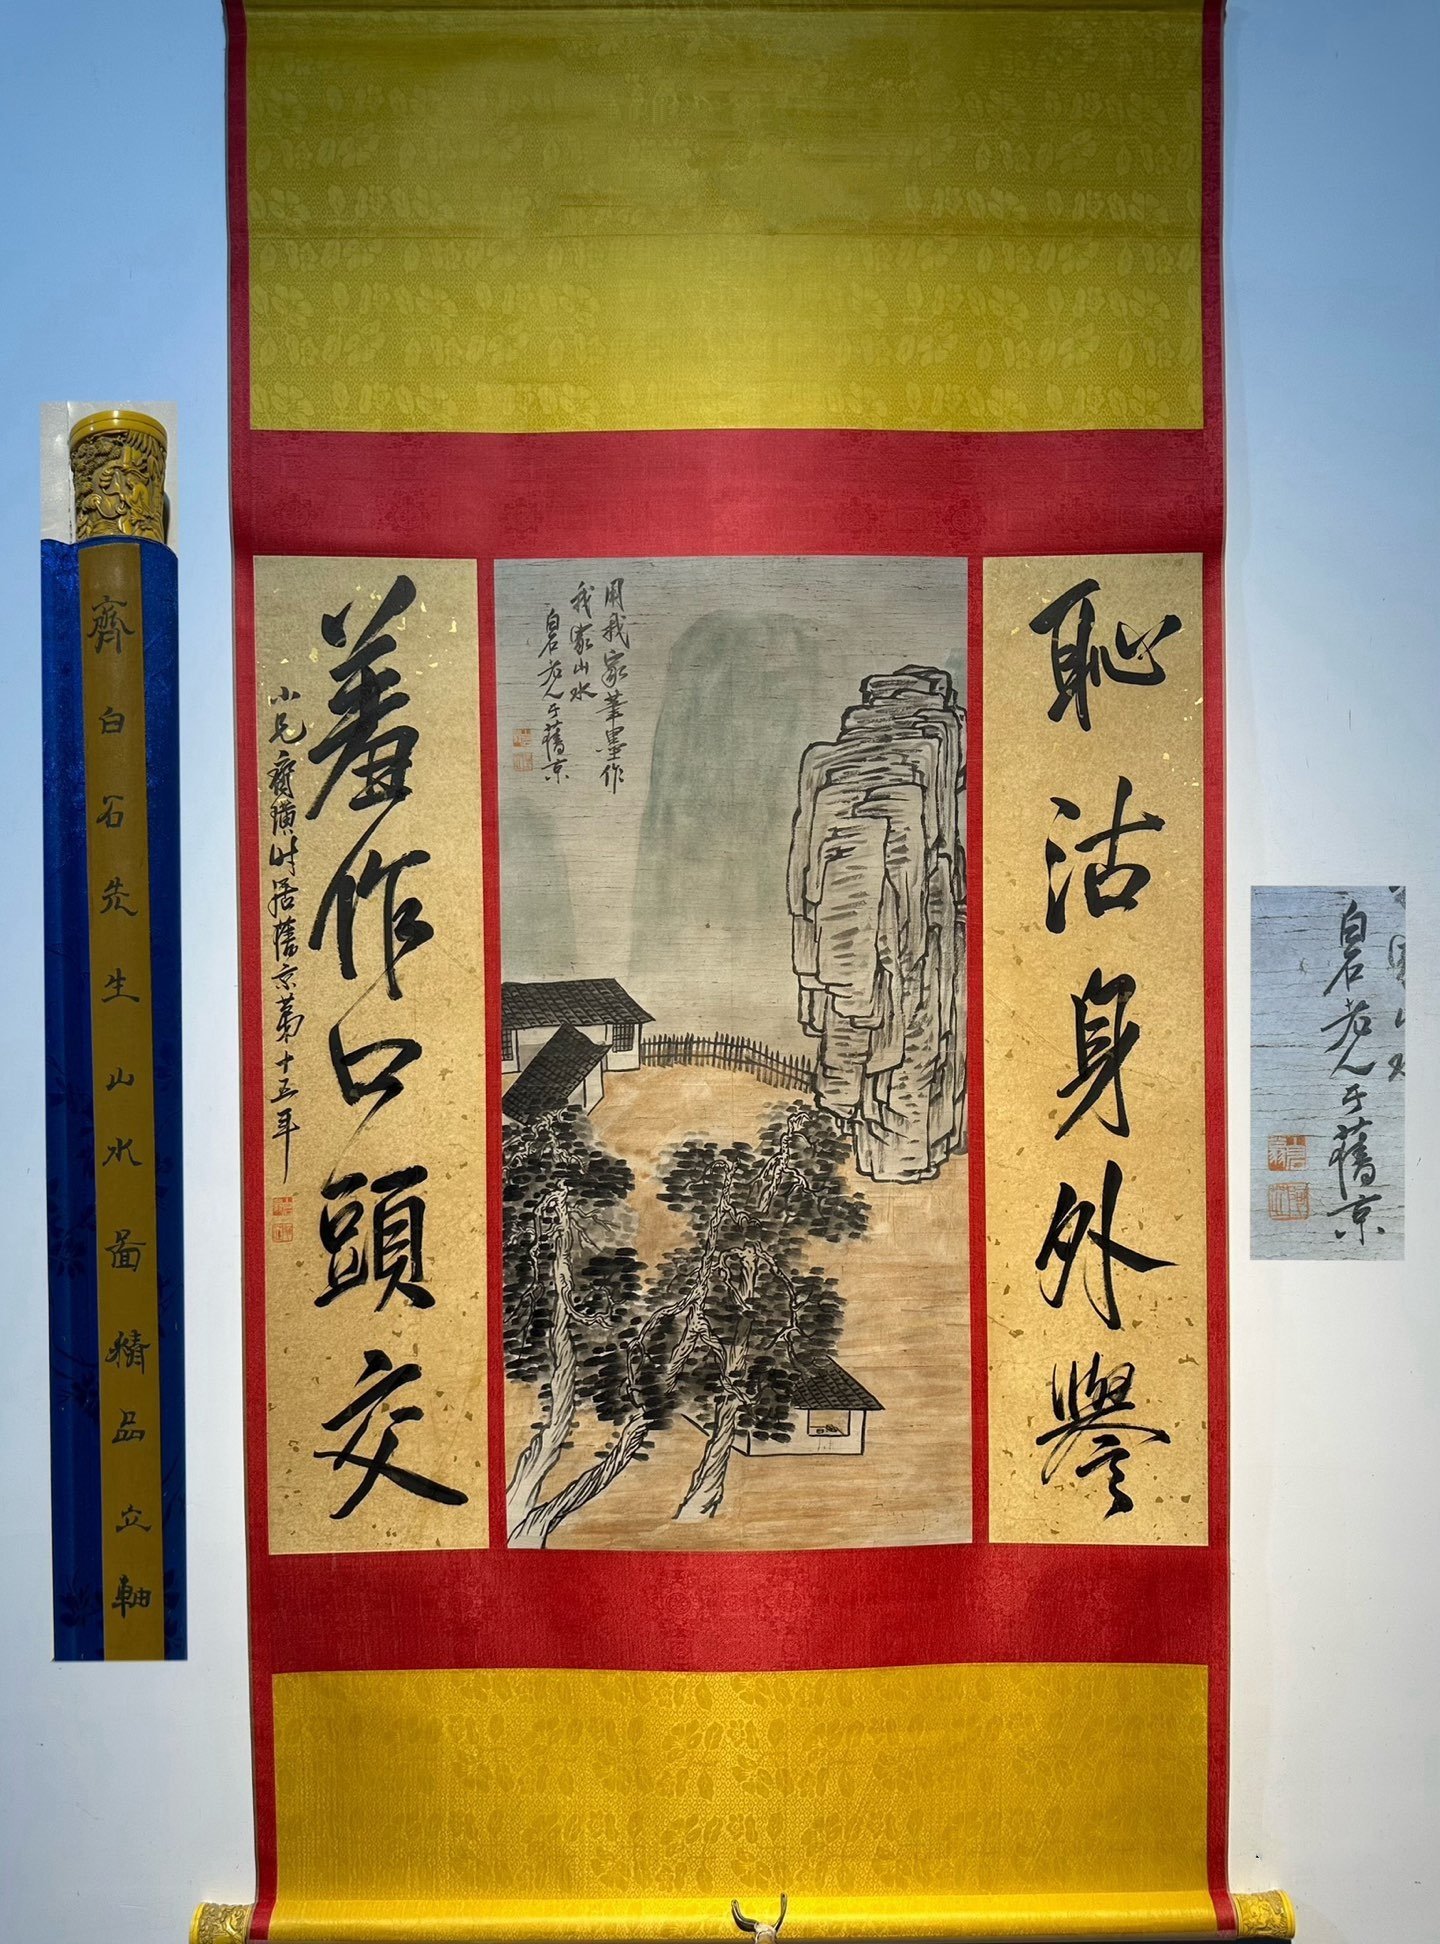 恥沽身外譽
羞作口頭交
小兄齊璜時居舊京第十五年
用我家筆墨作
我家山水
白石老人于舊京
齊白石先生山水圖精品立軸
白石老人于舊京